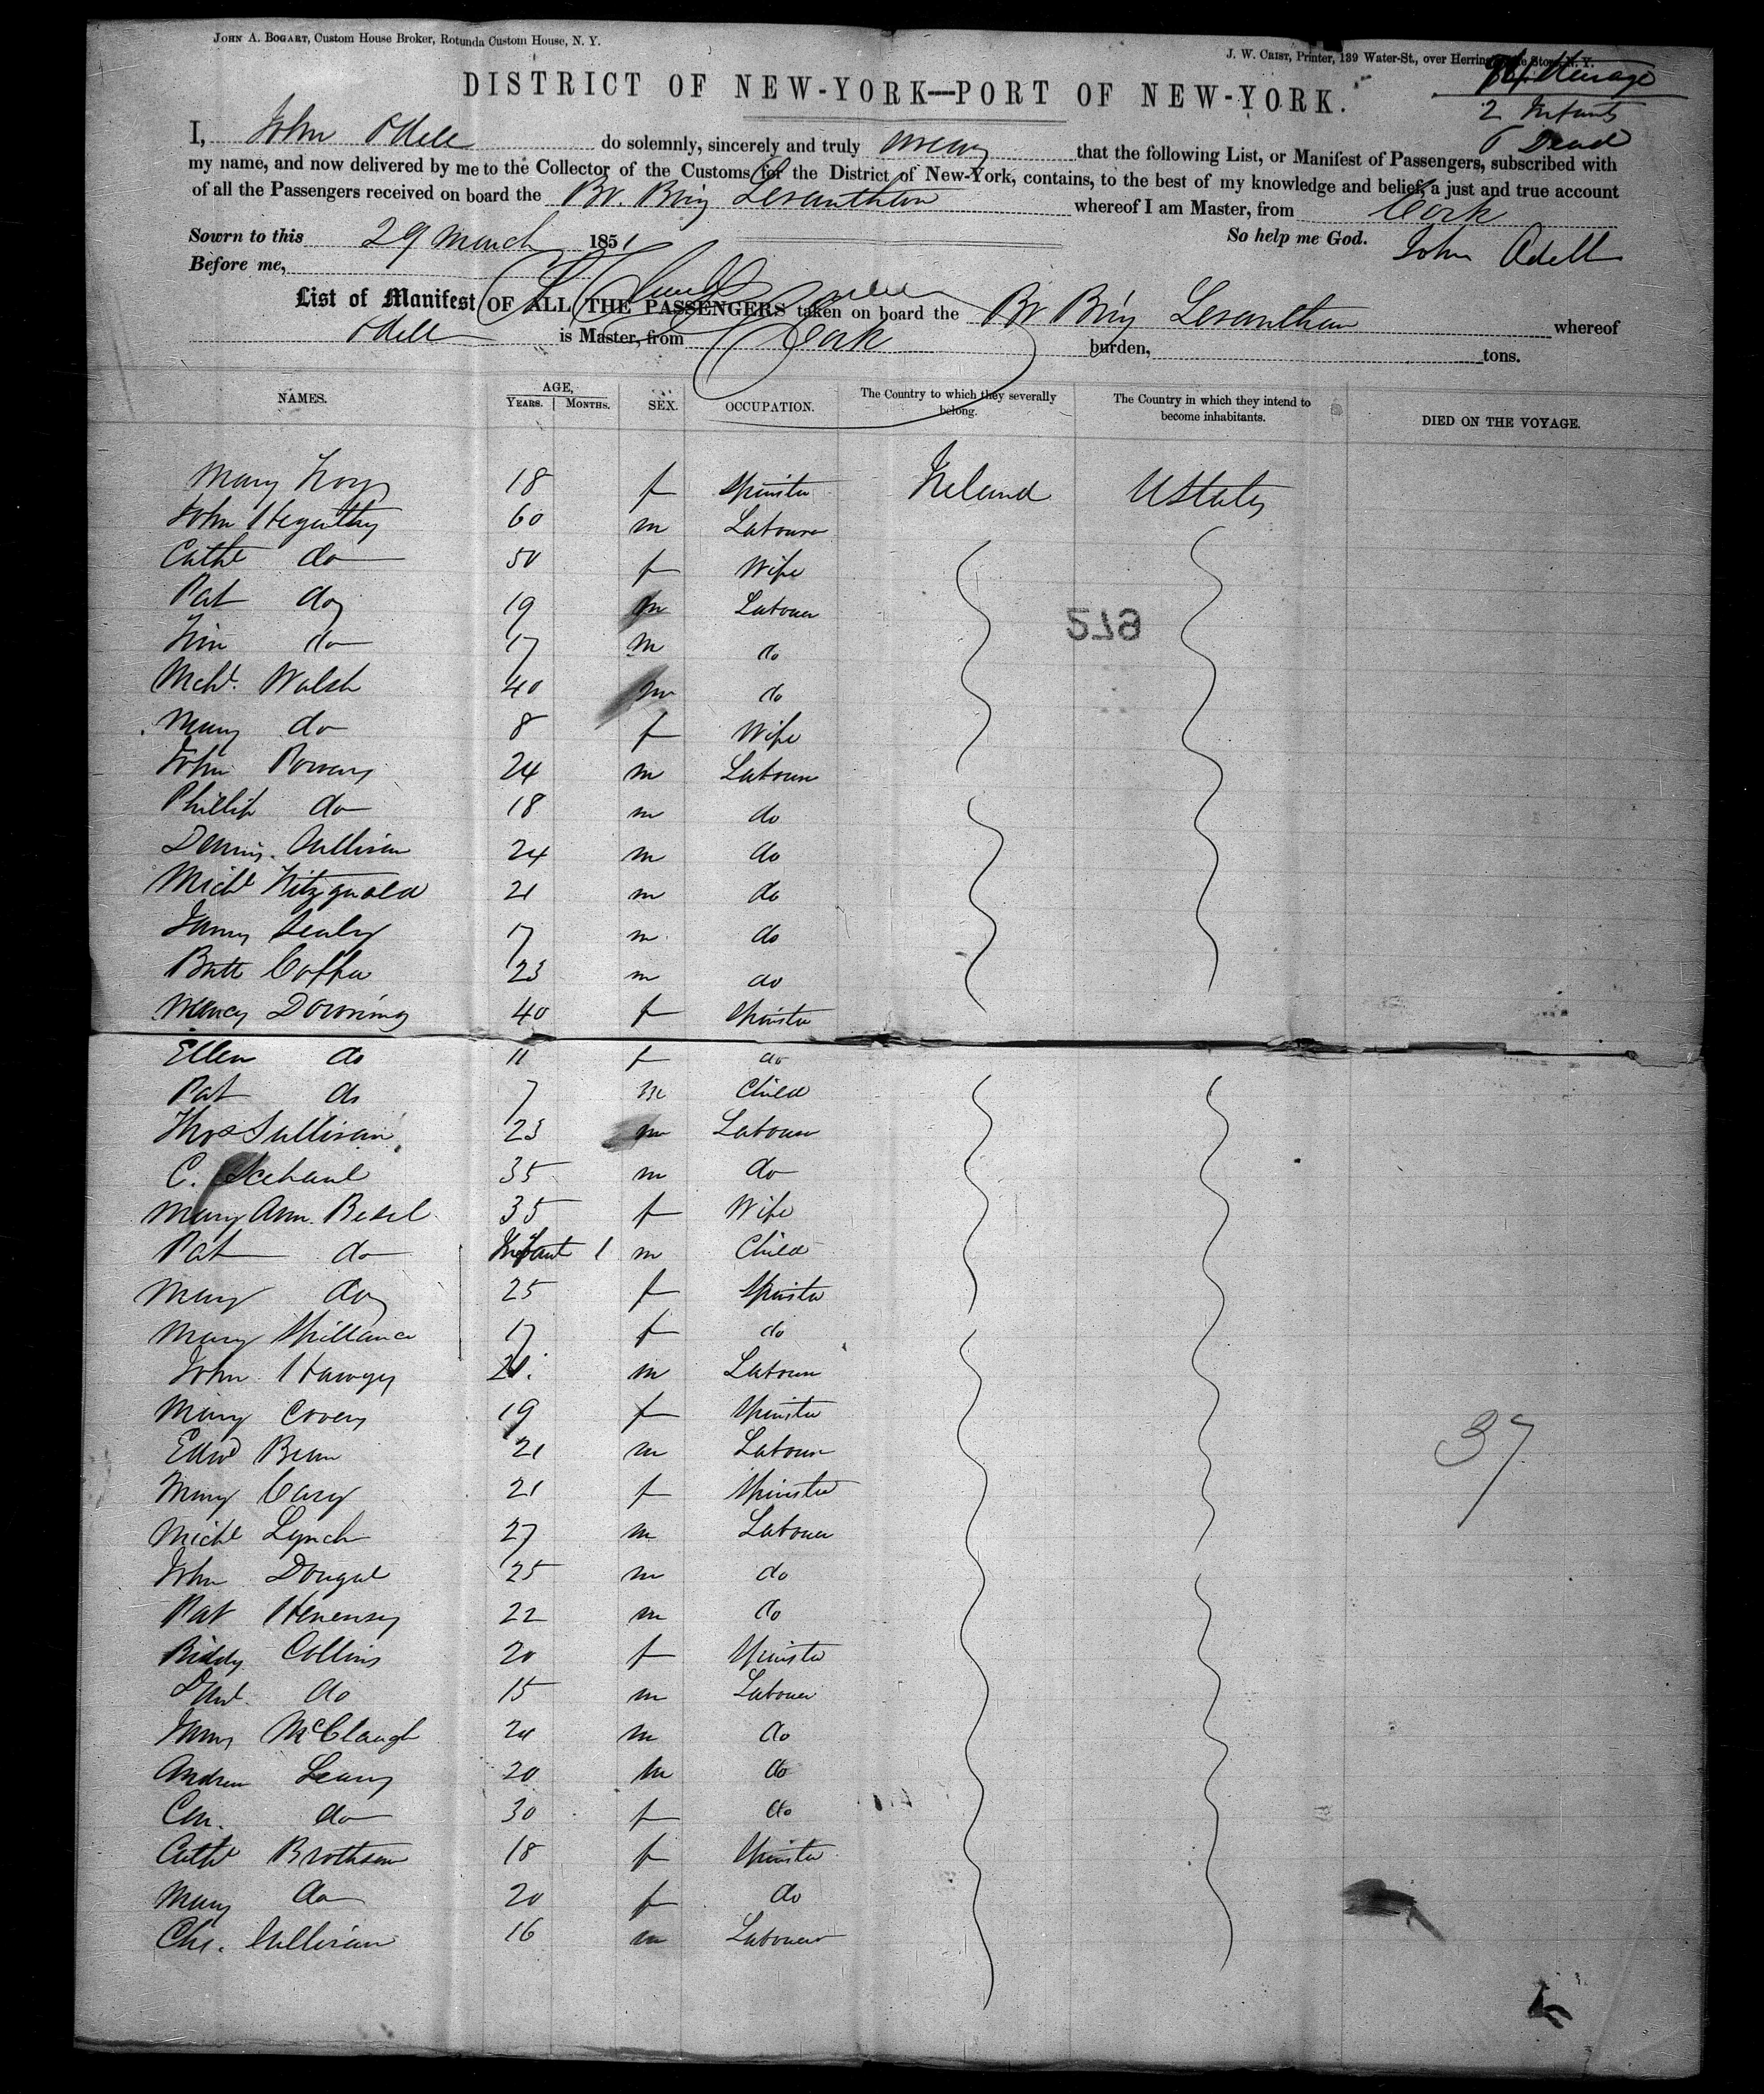 JOHN A. BOGART, Custom House Broker, Rotunda Custom House, N. Y.
J. W. CRIST, Printer, 139 Water-St., over Herring Store, N. Y.
DISTRICT OF NEW-YORK—PORT OF NEW-YORK.
Steerage
2 Infants
6 Dead
I, John Odell do solemnly, sincerely and truly swear that the following List, or Manifest of Passengers, subscribed with
my name, and now delivered by me to the Collector of the Customs for the District of New-York, contains, to the best of my knowledge and belief, a just and true account
of all the Passengers received on board the Br. Brig whereof I am Master, from Cork
Sowrn to this 29 March 1851 So help me God. John Odell
Before me,
List of Manifest OF ALL THE PASSENGERS taken on board the Br Brig whereof
Odell is Master, from Cork burden, tons.
NAMES. AGE, YEARS. MONTHS. SEX. OCCUPATION. The Country to which they severally belong. The Country in which they intend to become inhabitants. DIED ON THE VOYAGE.
Mary 18 f Spinster Ireland UStates
John Hegarthy 60 m Labourer
Cathe do 50 f Wife
Pat do 19 m Labourer
Tim do 17 m do
Michl. Walsh 40 m do
Mary do 8 f Wife
John Powers 24 m Labourer
Phillip do 18 m do
Dennis Sullivan 24 m do
Michl Fitzgerald 21 m do
James Sealy 17 m do
Batt Coffee 23 m do
Nancy Downing 40 f Spinster
Ellen do 11 f do
Pat do 7 m Child
Thos Sullivan 23 m Labourer
C. 35 m do
Mary Ann 35 f Wife
Pat do Infant 1 m Child
Mary do 25 f Spinster
Mary Spillance 17 f do
John 21 m Labourer
Mary 19 f Spinster
Edwd 21 m Labourer
Mary Cary 21 f Spinster
Michl Lynch 27 m Labourer
John Dougal 25 m do
Pat 22 m do
Biddy Collins 20 f Spinster
Danl. do 15 m Labourer
James McClaugh 24 m do
Andrew Leary 20 m do
do 30 f do
Cathe 18 f Spinster
Mary do 20 f do
Chs. Sullivan 16 m Labourer
37